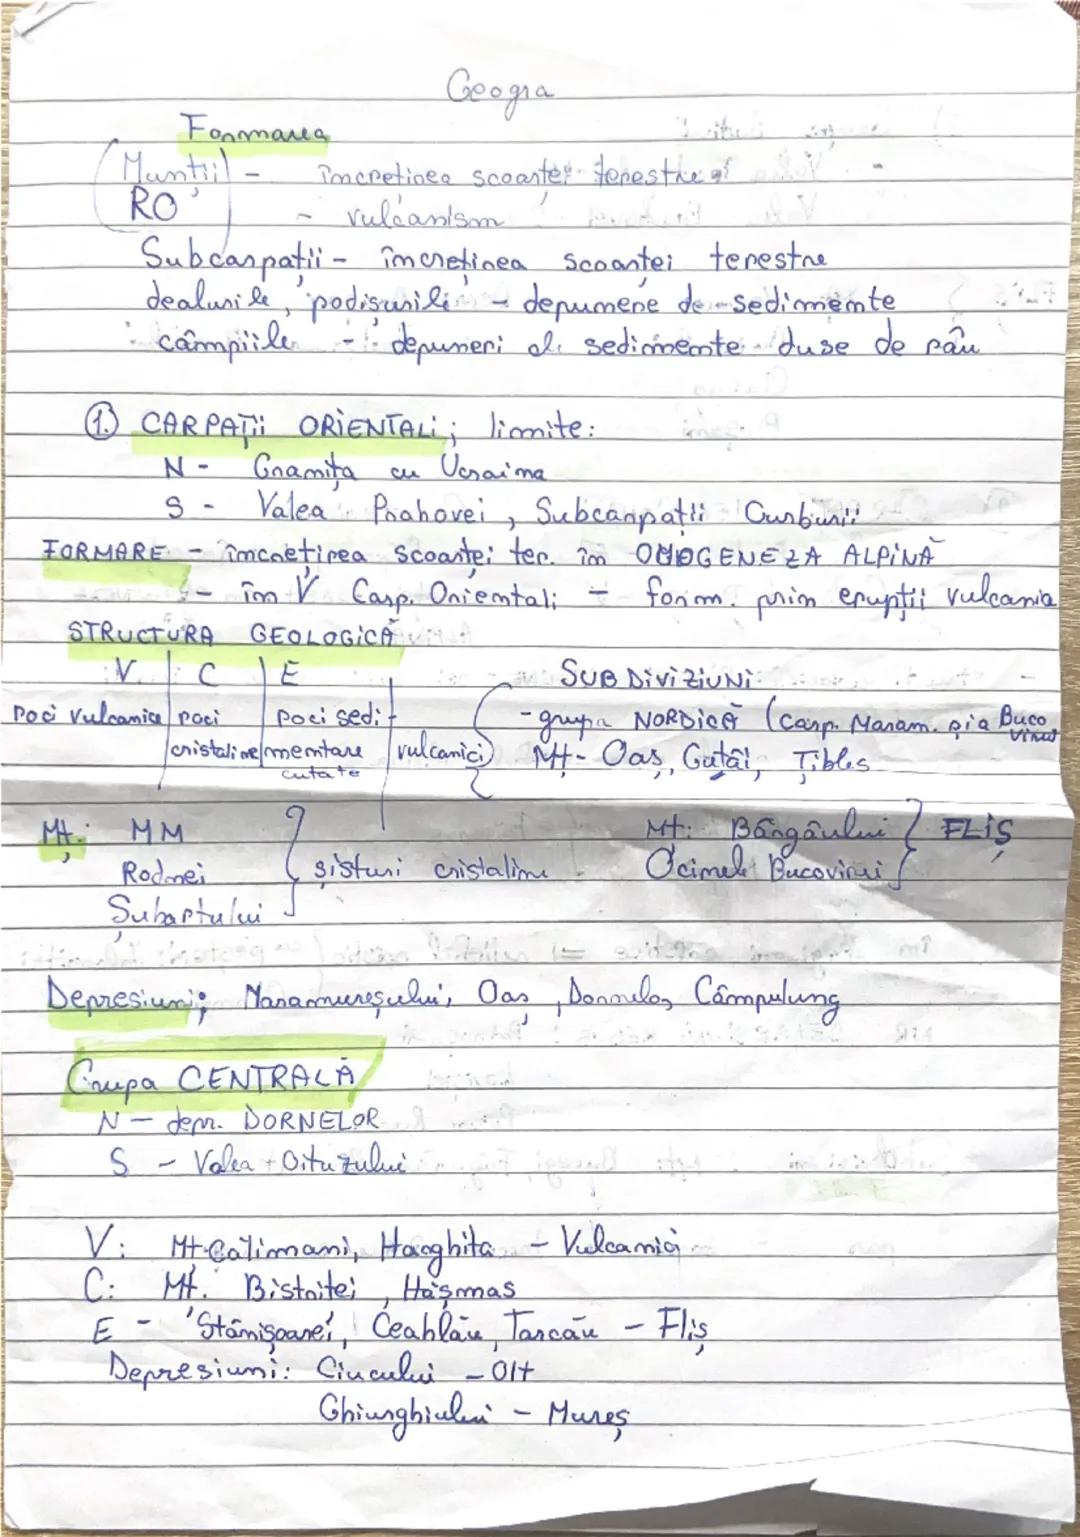 Geogra
Formarea
Munții - încrețirea scoarței terestre
RO - vulcanism
Subcarpații - încrețirea scoarței terestre
dealurile, podișurile - depunere de sedimente
câmpiile - depuneri de sedimente duse de râu
1. CARPAȚII ORIENTALI; limite:
N - Granița cu Ucraina
S - Valea Prahovei, Subcarpații Curburii
FORMARE - încrețirea scoarței ter. în OROGENEZA ALPINĂ
- în V Carp. Orientali - form. prin erupții vulcanice
STRUCTURA GEOLOGICĂ
V C E SUBDIVIZIUNI
Roci vulcanice roci roci sedi - grupa NORDICĂ (Carp. Maram. și a Buco
cristaline mentare vulcanici Mț - Oaș, Gutâi, Țibleș vinei
cutate
Mț: MM Mț: Bârgăului FLIȘ
Rodnei șisturi cristaline Obcinele Bucovinei
Suhartului
Depresiuni: Maramureșului, Oaș, Dornelor, Câmpulung
Grupa CENTRALĂ
N - depr. DORNELOR
S - Valea Oituzului
V: Mț Călimani, Harghita - Vulcanici
C: Mț. Bistriței, Hășmaș
E - Stânișoarei, Ceahlău, Tarcău - Fliș
Depresiuni: Ciucului - Olt
Ghiurghiului - Mureș